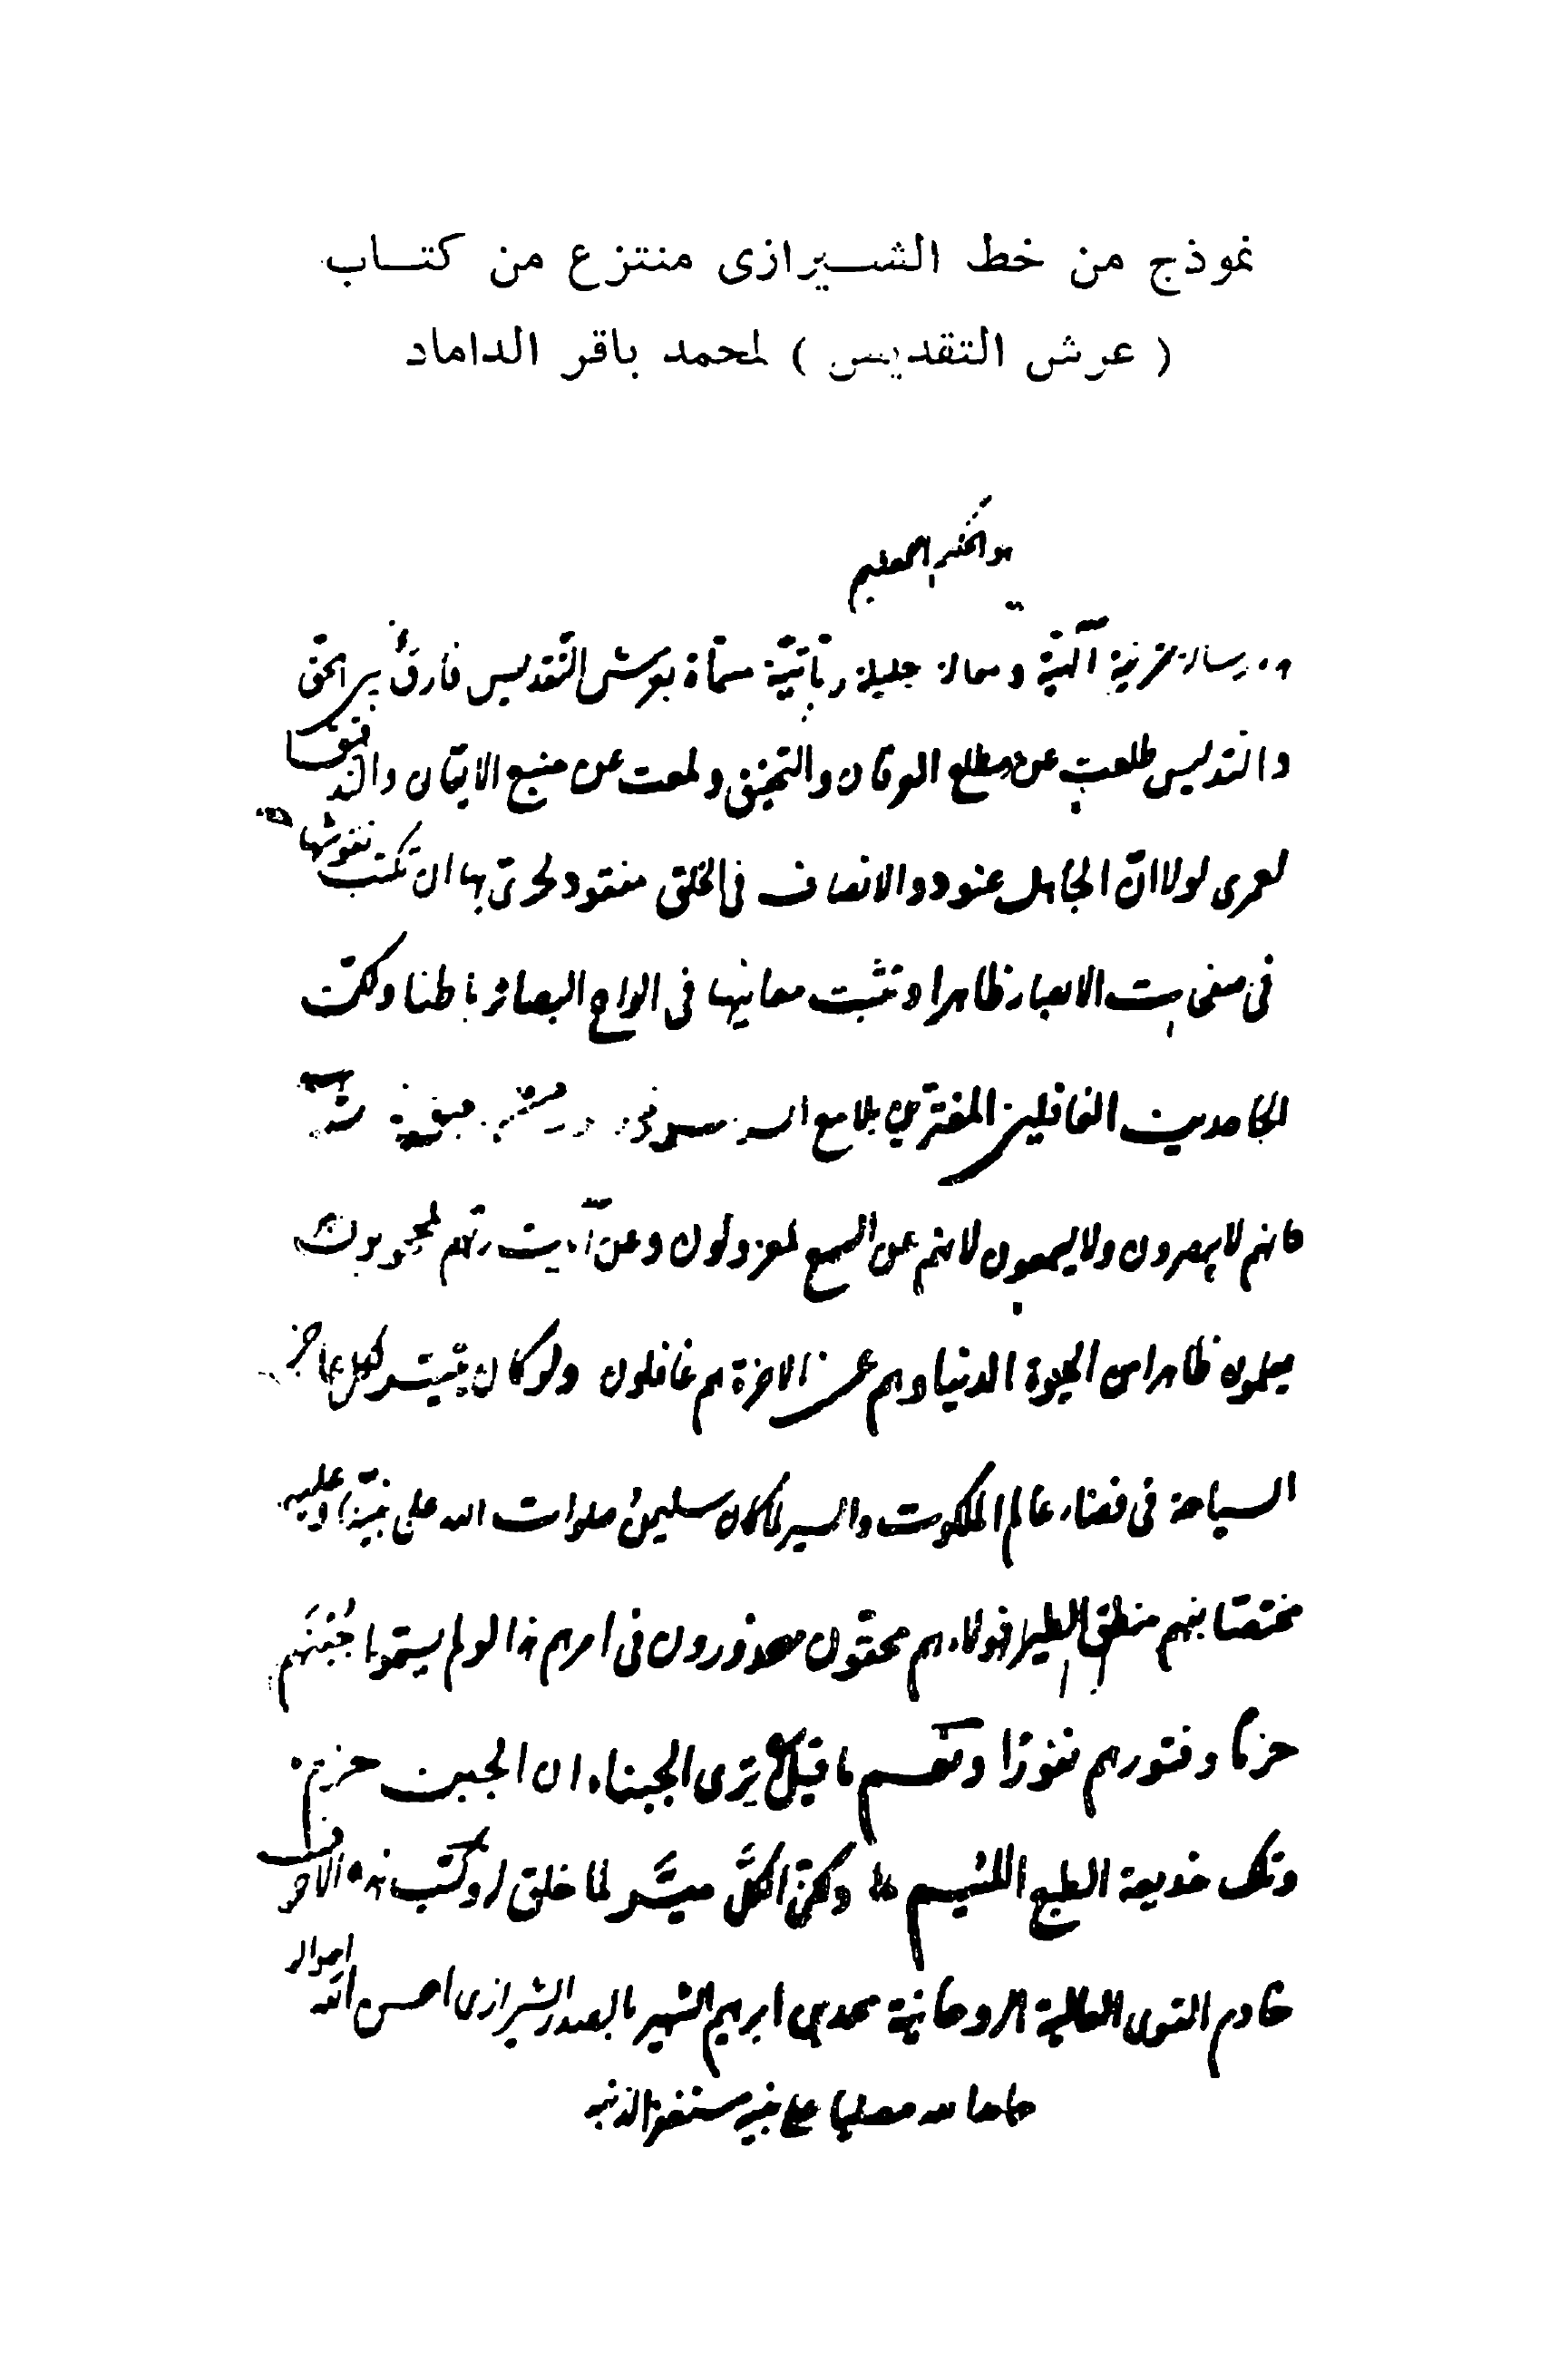 نموذج من خط الشيرازى منتزع من كتاب
( عرش التقديس ) لمحمد باقر الداماد
هو الحكيم العليم
رسالة شريفة آلهية ومقالة جليلة ربّانيّة مسمّاة بعرش التّقديس فارقٌ بين الحق
والتدليس طلعت عن مطلع العرفان والتحقيق ولمعت عن منبع الايقان والتد
لعمرى لولا انّ الجاهل عنود والانصاف فى الخلق مفقود لحرىّ بها ان تكتب نقوشها
فى صفحات الابصار ظاهرا وتثبت معانيها فى الواح البصائر باطنا ولكنّ
الجاحدين الغافلين المغترّين بلامع
كانهم لا يبصرون ولا يسمعون لانهم عن السمع لمعزولون وعن آيات ربّهم لمحجوبون
يعلمون ظاهرا من الحيوة الدنيا وهم عن الاخرة هم غافلون ولو كان يتيسّر لكل عاجز
السياحة فى فضاء عالم الملكوت والسير لما كان سليمنُ صلوات الله على نبيّنا وعليه
مختصّا بفهم منطق الطير فهولاء هم محقّون معذورون فى امرهم هذا لو لم يسمّوا جُبْنَهم
حزما وفتورهم نفورًا ونعم ما قيل يرى الجبناء ان الجبن حزم
وتلك خديعة الطبع اللئيم ولكنّ الكلَّ ميسَّر لما خلق له وكتب هذه الاحرف
خادم القوى العالية الروحانية محمد بن ابرهيم الشهير بالصدر الشيرازى احسن الله احواله
حامدا لله مصليا على نبيه مستغفرا لذنبه